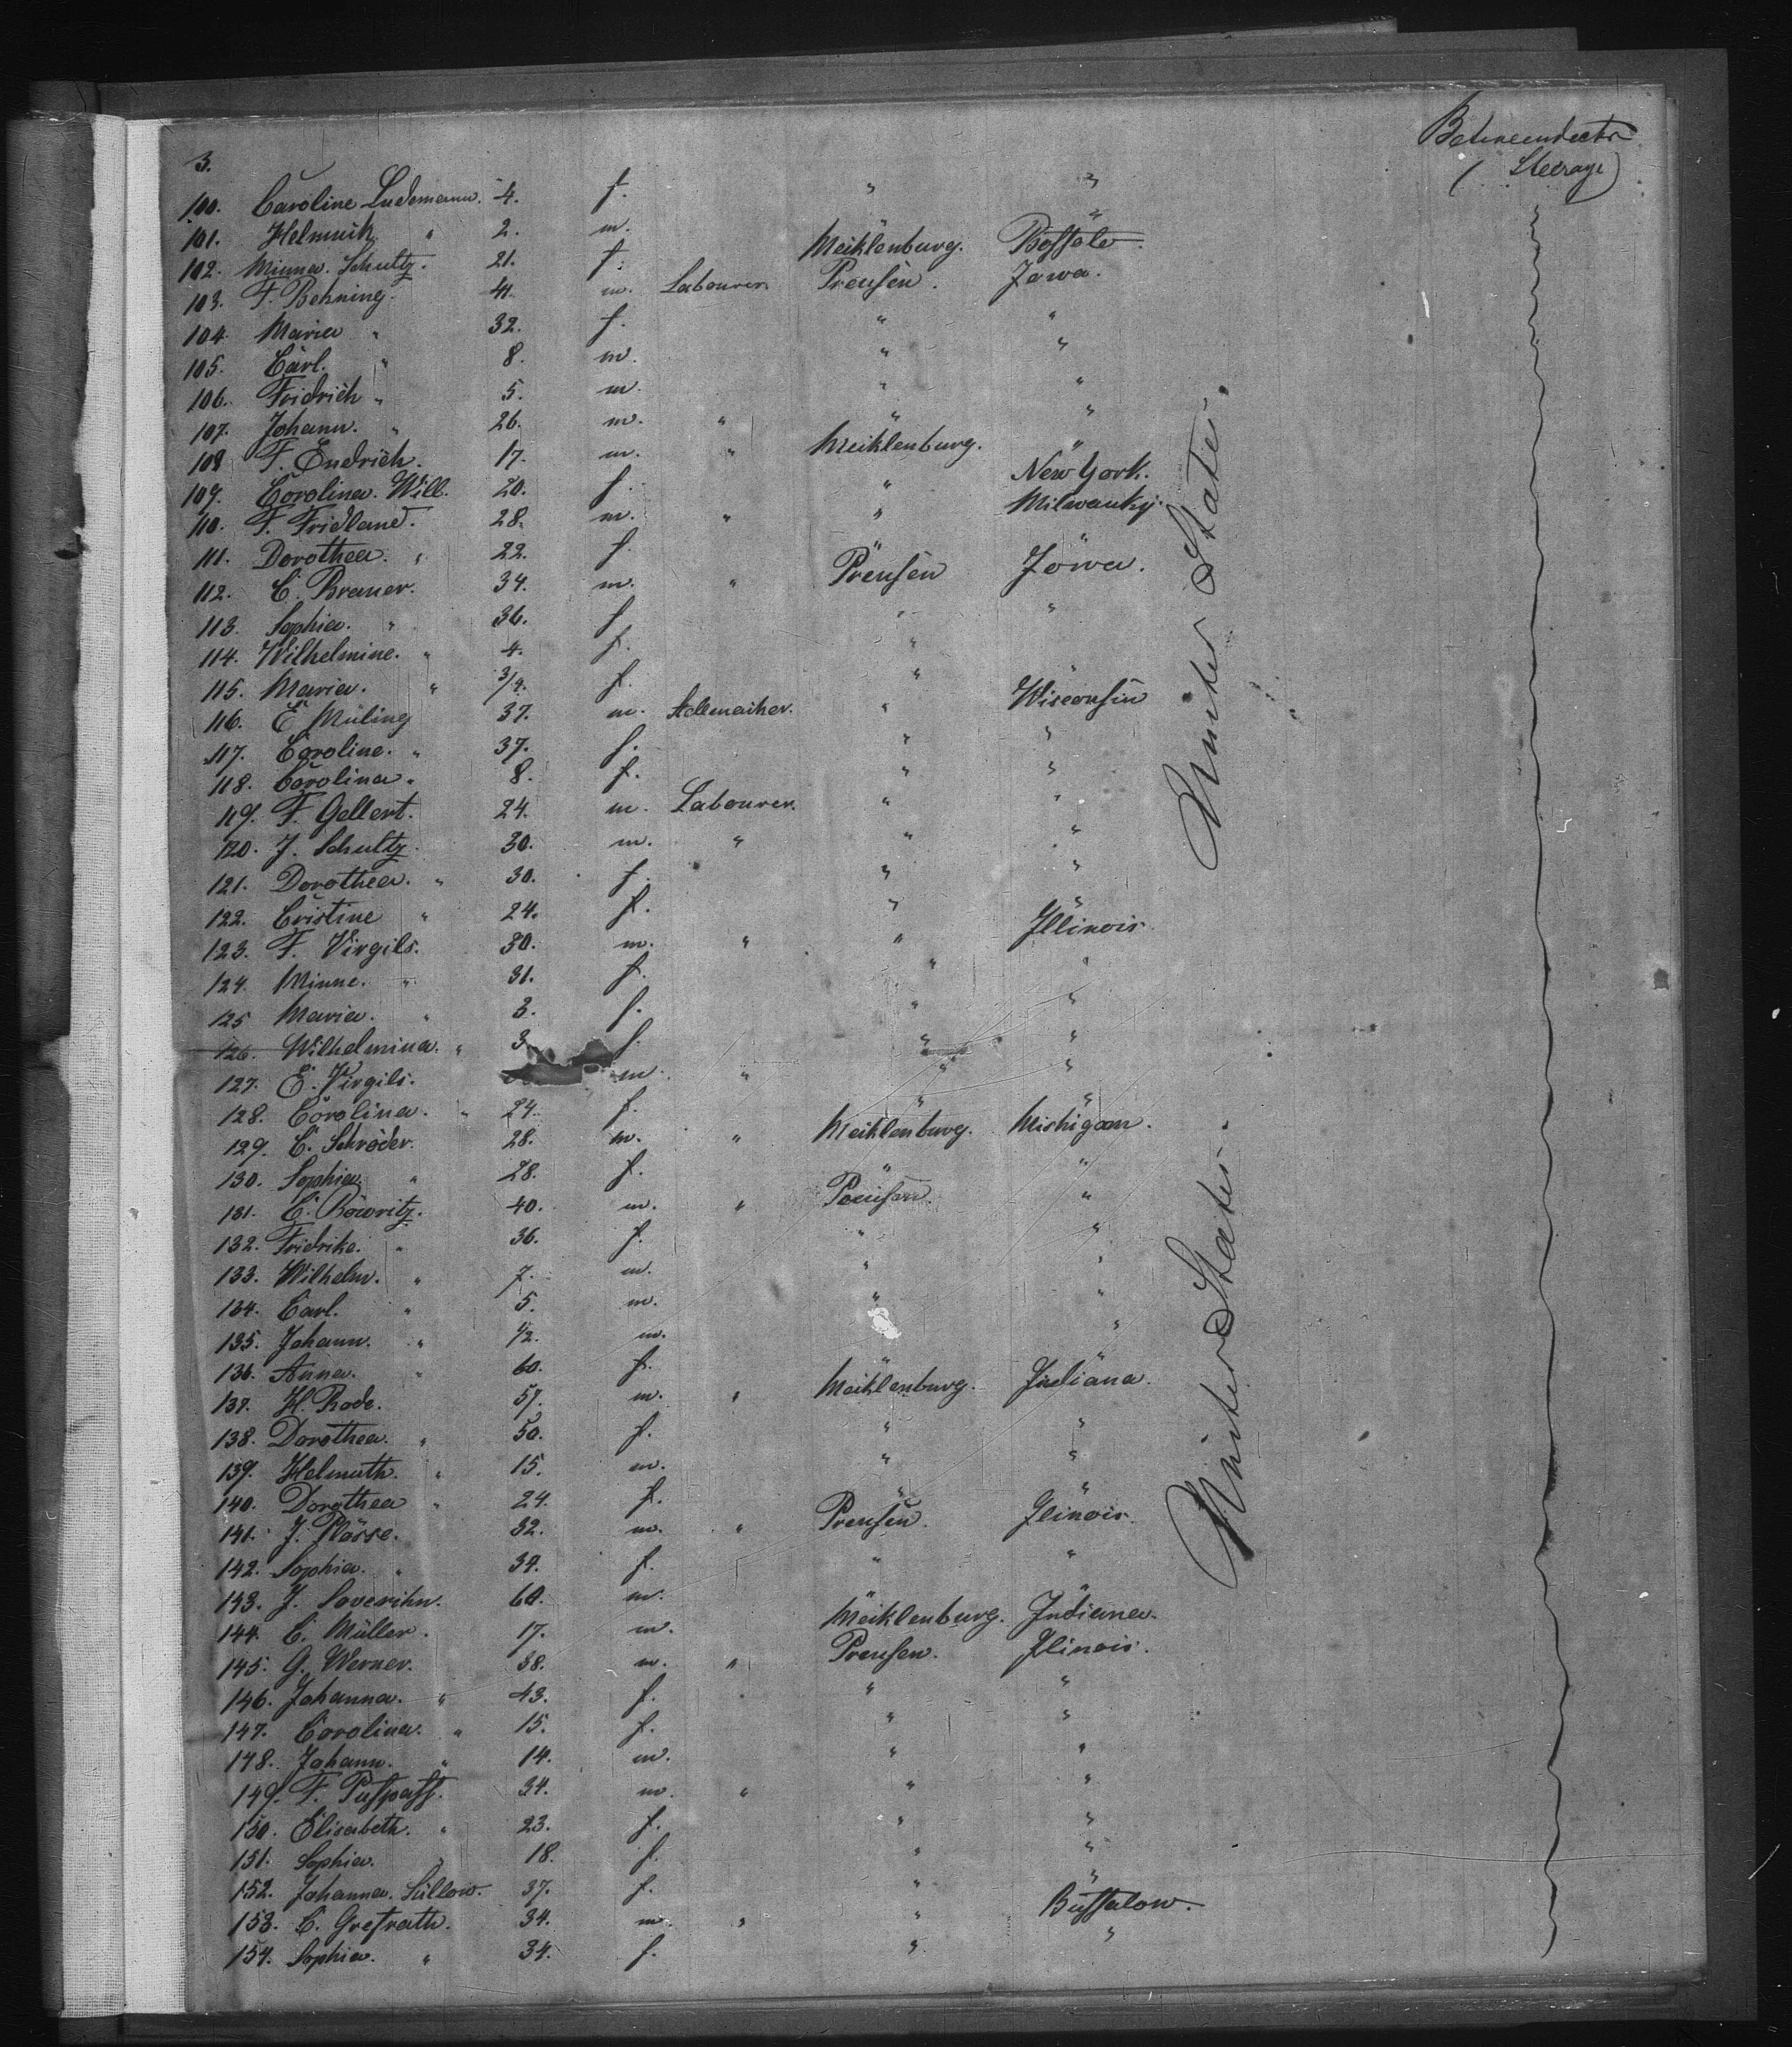 Betweendecks
( Steerage )
3.
100. Caroline Ludemann. 4. f. " "
101. Helmuth " 2. m. "
102. Minna. Schultz. 21. f. Meiklenburg. Boffalo.
103. F. Behning. 41. m. Labourer. Preusen. Jowa.
104. Maria " 32. f. " "
105. Carl. " 8. m. " "
106. Fridrich " 5. m. " "
107. Johann. " 26. m. " " "
108 F. Endrich. 17. m. " Meiklenburg. "
109. Corolina. Will. 20. f. " New York.
110. F. Fridland. 28. m. " " Milwauky.
111. Dorothea. " 22. f. " "
112. C. Brauer. 34. m. " Preusen Jowa.
113. Sophia. " 36. f " "
114. Wilhelmine. " 4. f. "
115. Maria. " 3/4. f. "
116. C. Müling 37. m. " Wisconsin
117. Caroline. " 37. f. " "
118. Carolina. " 8. f. " "
119. F. Gellert. 24. m. Labourer. " "
120. J. Schultz. 30. m. " " "
121. Dorothea. " 30. f. " "
122. Cristine " 24. f. " "
123. F. Virgils. 30. m. " " Jllinois
124. Minne. " 31. f. " "
125 Maria. " 3. f. " "
126. Wilhelmina. " 3 f. " "
127. C. Virgils. m. " " "
128. Corolina. " 24. f. " "
129. C. Schröder. 28. m. " Meiklenburg. Mishigan.
130. Sophia. " 28. f. " "
131. C. Böwritz. 40. m. " Preusen. "
132. Fridrike. " 36. f. " "
133. Wilhelm. " 7. m. " "
134. Carl. " 5. m. " "
135. Johann. " 1/2. m. "
136. Anna. " 60. f. " "
137. H. Rode. 57. m. " Meiklenburg. Jndiana.
138. Dorothea. " 50. f. " "
139. Helmuth. " 15. m. " "
140. Dorothea " 24. f. " "
141. J. Plösse. 32. m. " Preusen. Jlinois.
142. Sophia. " 34. f. " "
143. J. Saverihn. 60. m.
144. C. Müller. 17. m. Meiklenburg. Jndiana.
145. G. Werner. 38. m. " Preusen. Jlinois.
146. Johanna. " 43. f. " "
147. Corolina. " 15. f. " "
148. Johann. " 14. m. " "
149. F. 34. m. " " "
150. Elisabeth. " 23. f. " "
151. Sophia. " 18. f. " "
152. Johanna. Süllow. 37. f. " "
153. C. Grefrath. 34. m. " " Buffalow.
154. Sophia. " 34. f. " "
United States.
United States.